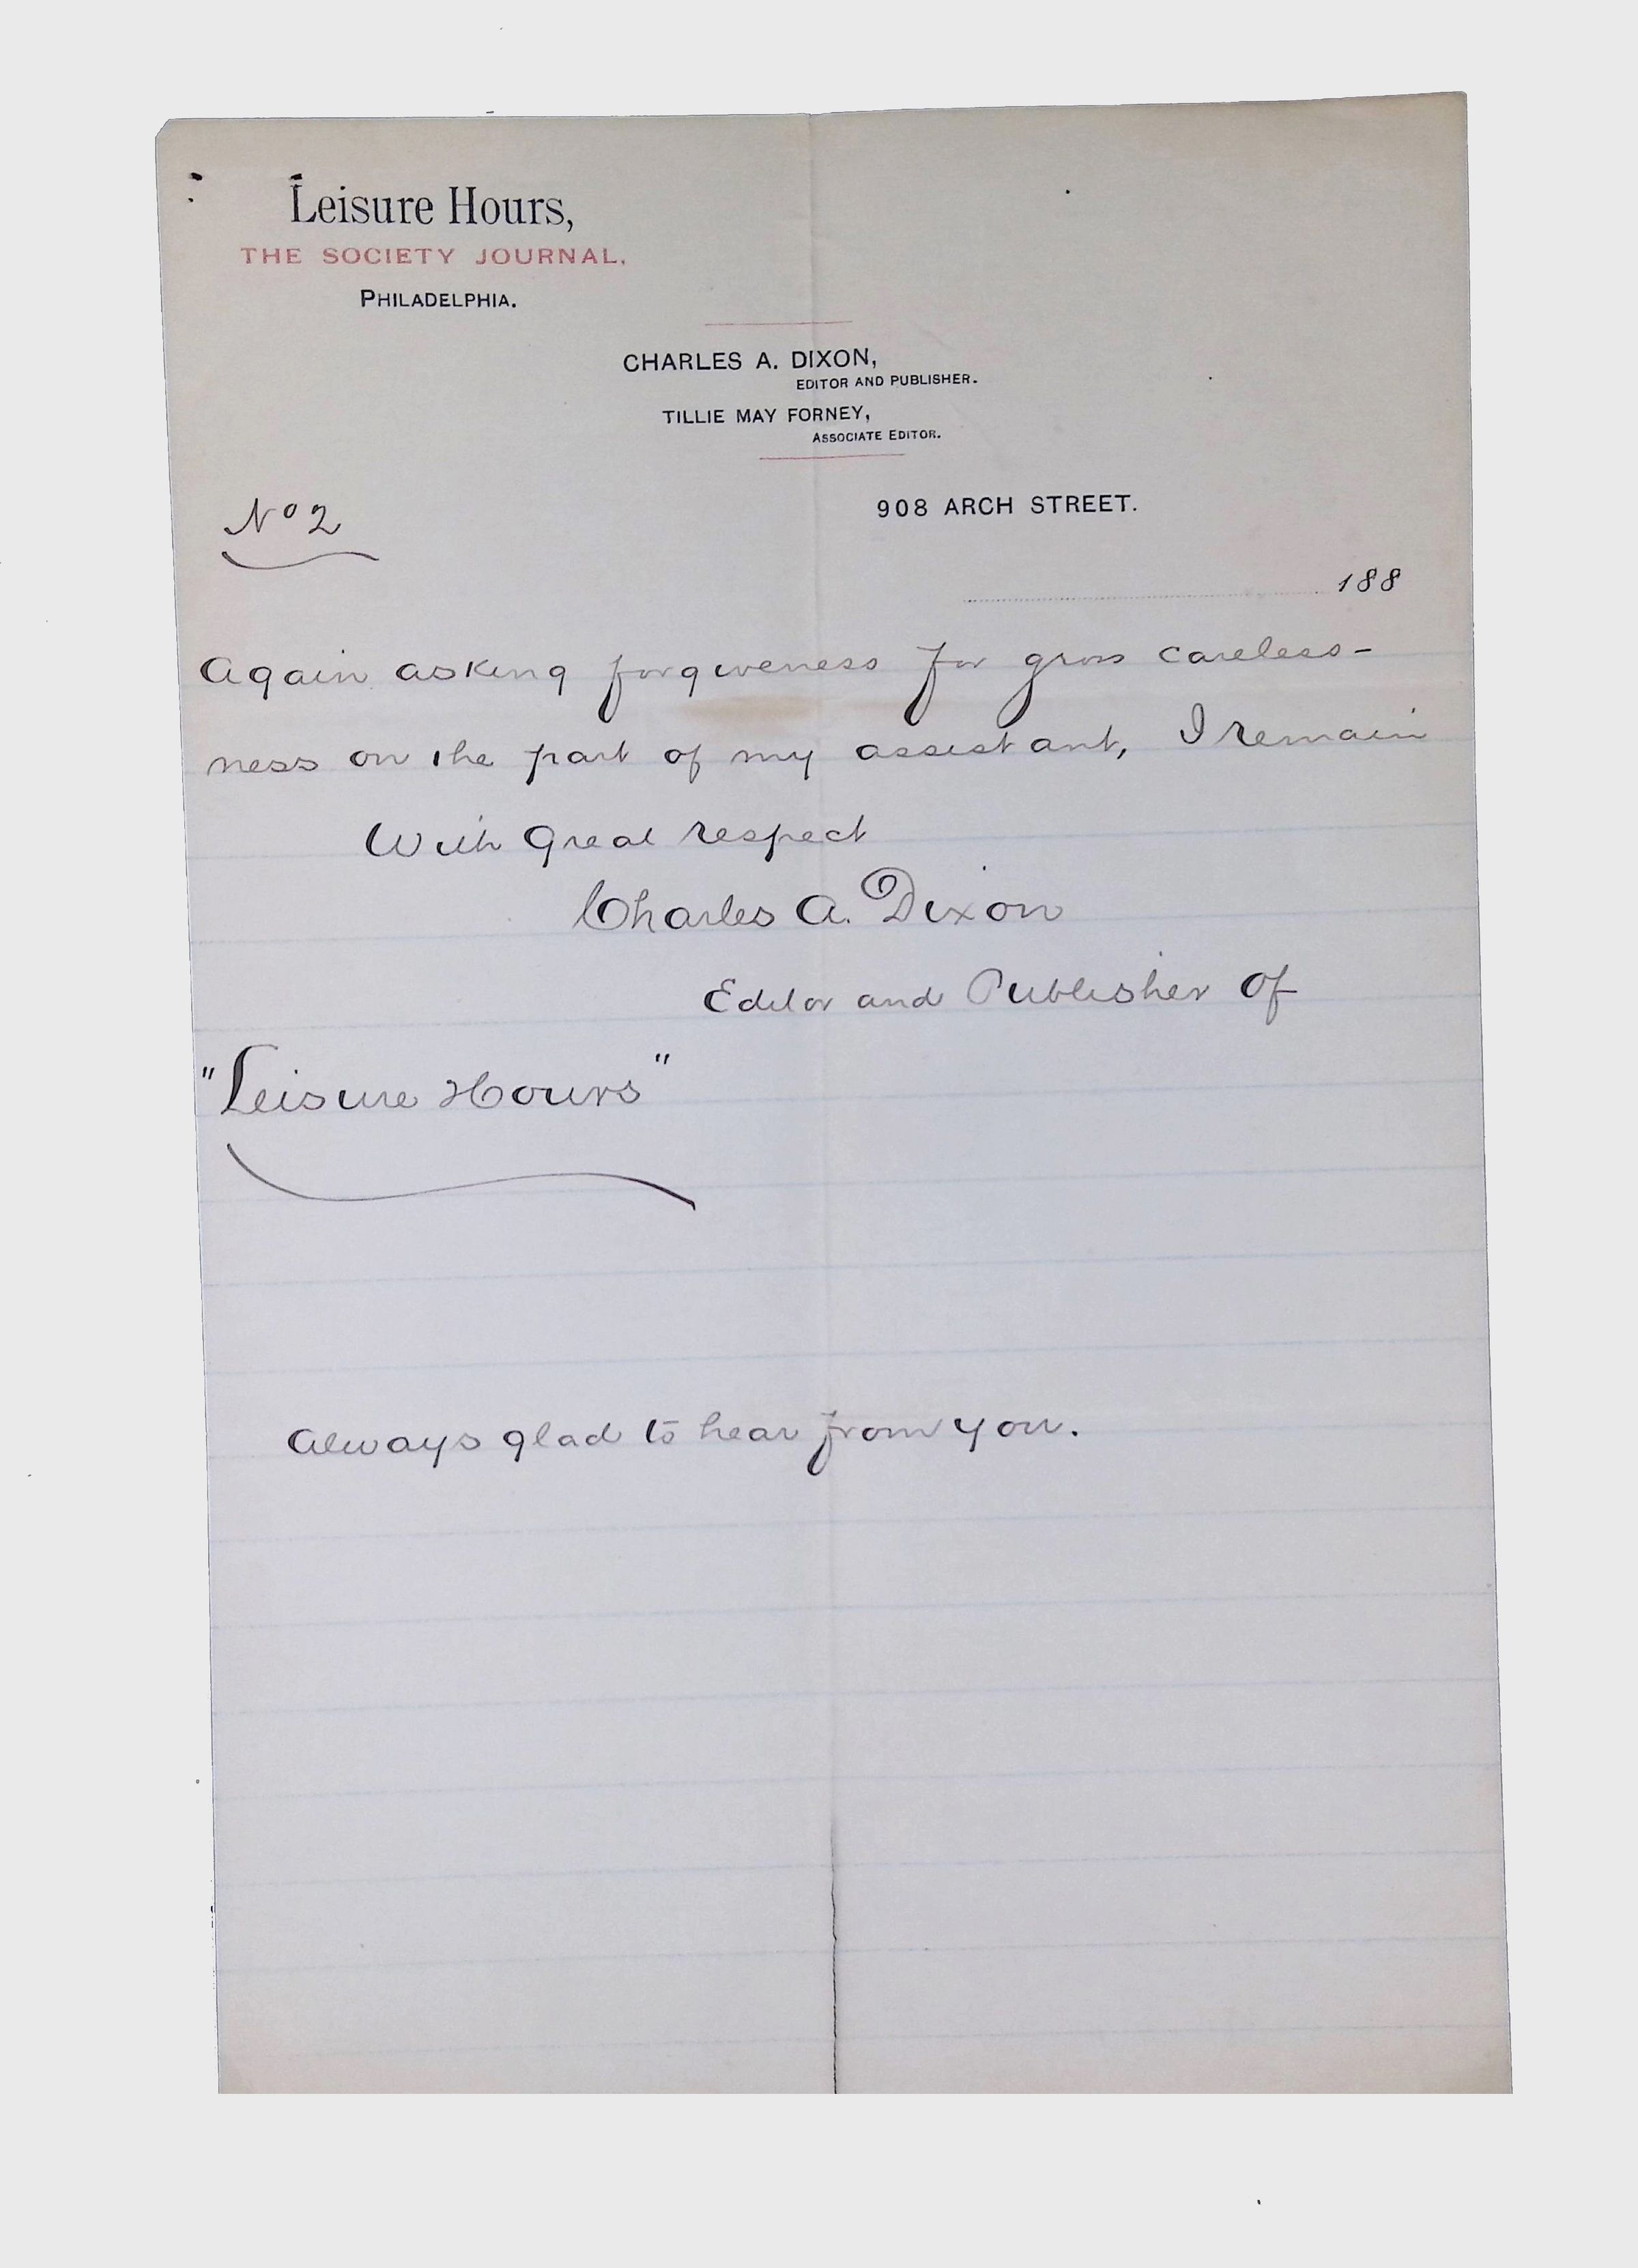 Leisure Hours,
THE SOCIETY JOURNAL,
PHILADELPHIA.
CHARLES A. DIXON,
EDITOR AND PUBLISHER.
TILLIE MAY FORNEY,
ASSOCIATE EDITOR.
908 ARCH STREET.
No 2
188
Again asking forgiveness for gross careless-
ness on the part of my assistant, I remain
With Great respect
Charles A. Dixon
Editor and Publisher Of
"Leisure Hours"
Always glad to hear from you.